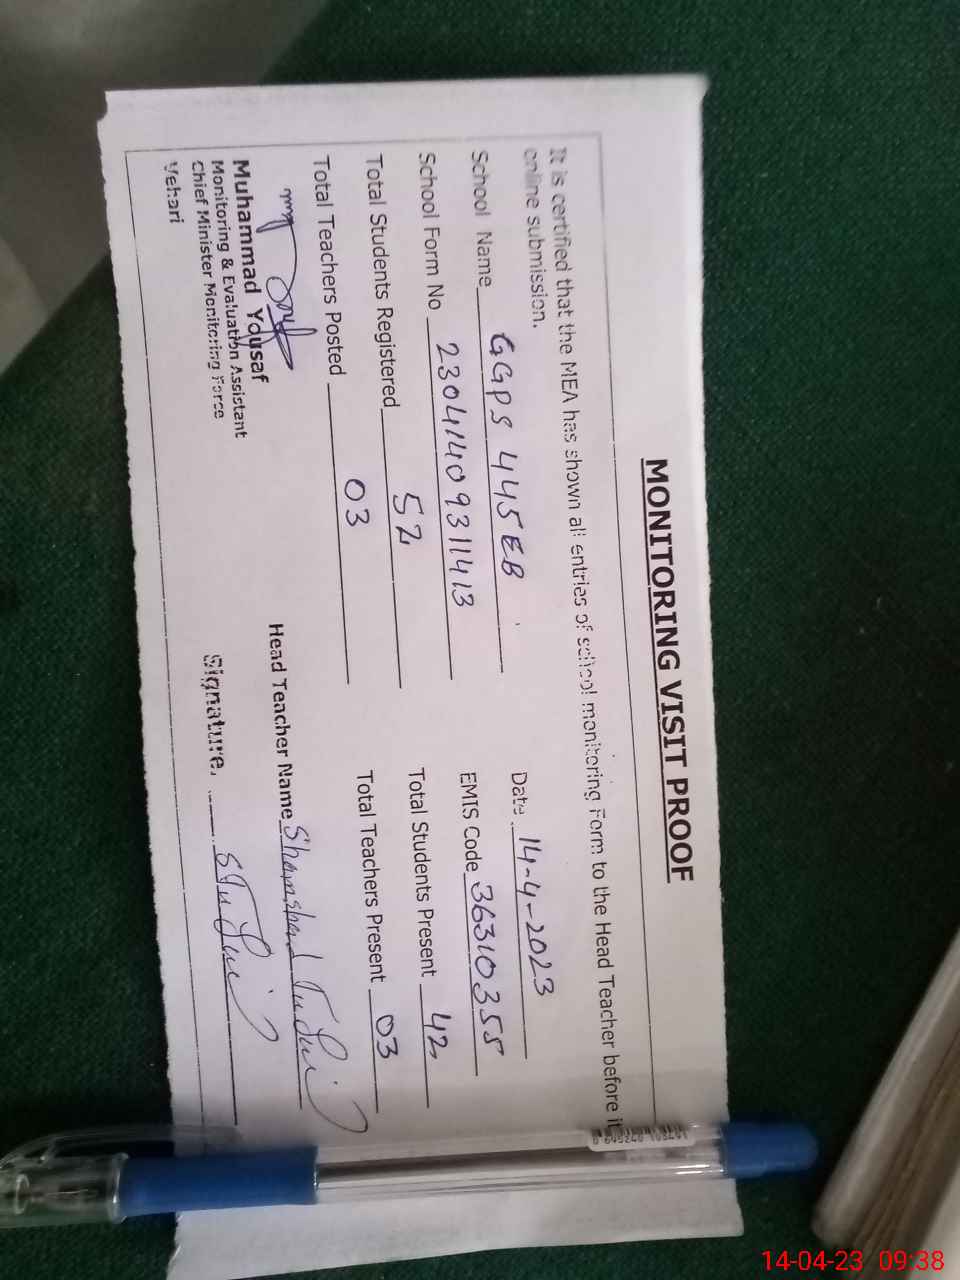 MONITORING VISIT PROOF
It is certified that the MEA has shown all entries of school monitoring Form to the Head Teacher before it
online submission.
School Name GGPS 445 EB Date 14-4-2023
School Form No 23041409311413 EMIS Code 36310355
Total Students Registered 52 Total Students Present 42
Total Teachers Posted 03 Total Teachers Present 03
Muhammad Yousaf
Monitoring & Evaluation Assistant
Chief Minister Monitoring Force
Vehari
Head Teacher Name
Signature.
14-04-23 09:38